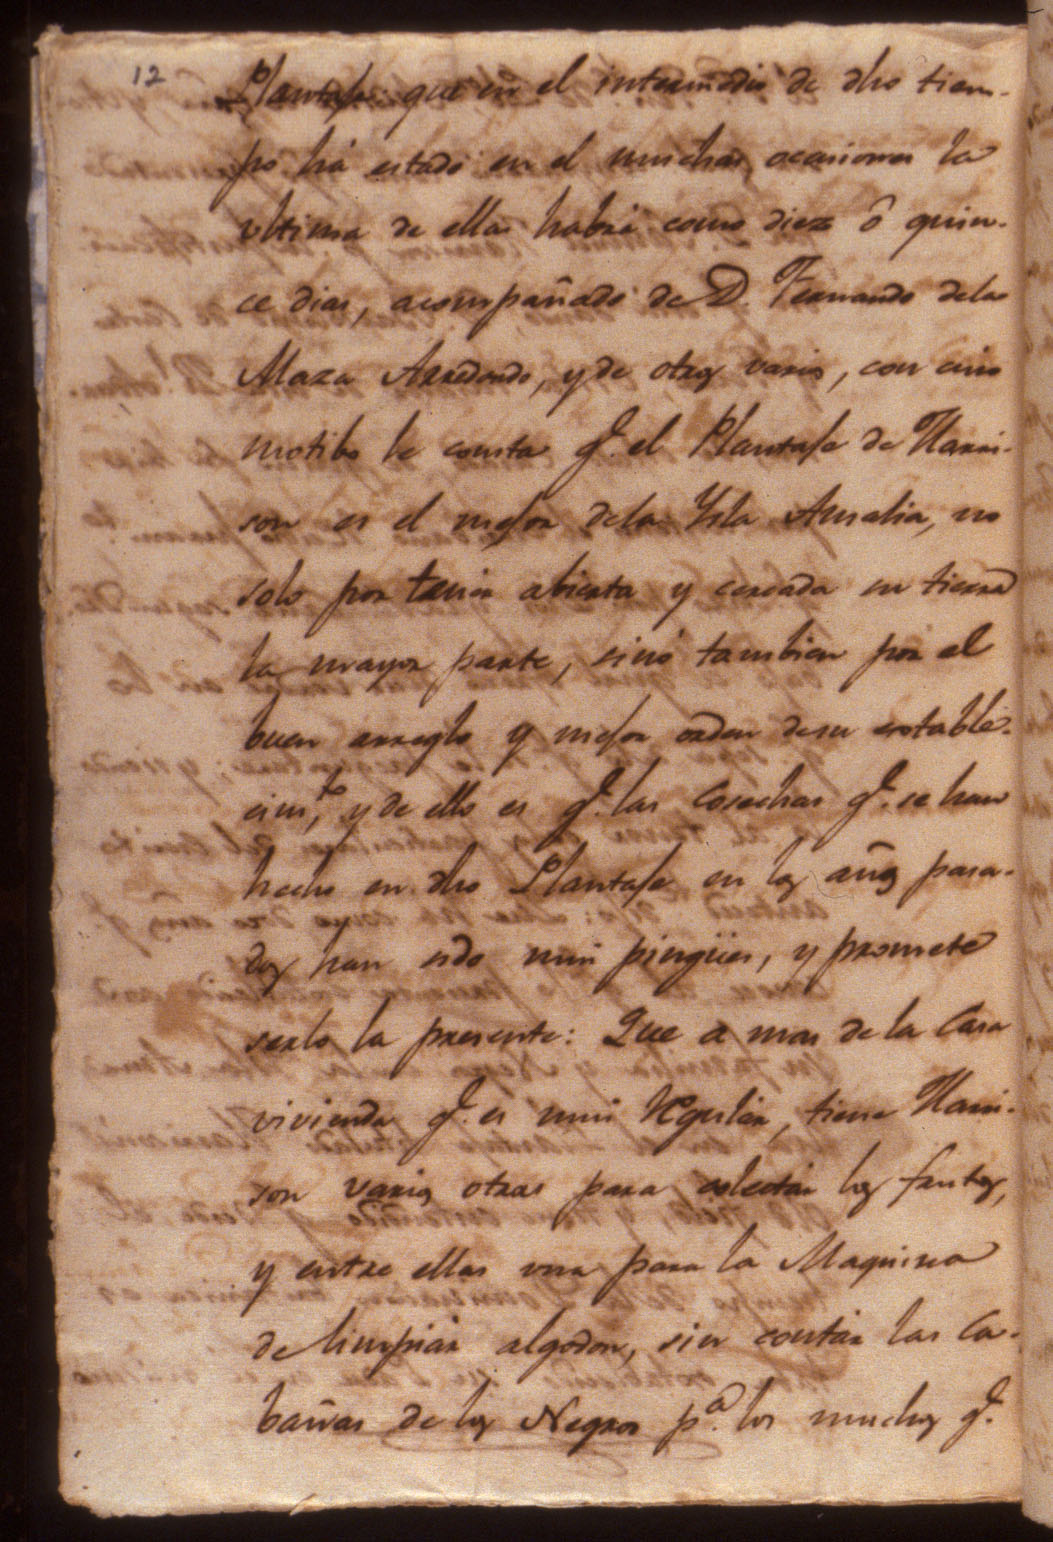 12
Plantaje: que en el intermedio de dho tiem-
po há estado en el muchas ocasiones la
ultima de ellas habrá como dieze ô quin-
ce dias, acompañado de D. Fernando dela
Maza Arredondo, y de otros varios, con cuio
motibo le consta q.e el Plantaje de Harri-
son es el mejor dela Ysla Amalia, no
solo por tenér abierta y cercada su tierra
la mayor parte, sinó tambien por el
buen arreglo y mejor orden desu estable-
cim.to, y de ello es q.e las cosechas q.e se han
hecho en dho Plantaje en los años pasa-
dos han sido mui pingües, y promete
serlo la presente: Que a mas de la Casa
vivienda q.e es mui regular, tiene Harri-
son varias otras para colectár los frutos,
y entre ellas una para la Maquina
de limpiár algodon, sin contár las Ca-
bañas de los Negros p.a los muchos q.e